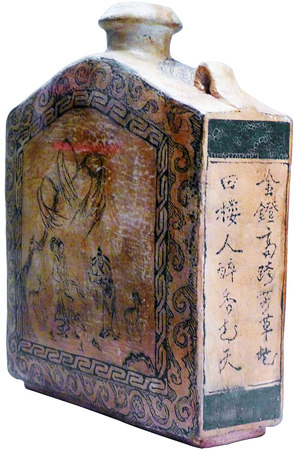 金鐙高跨芳草地
樓人醉杏花天